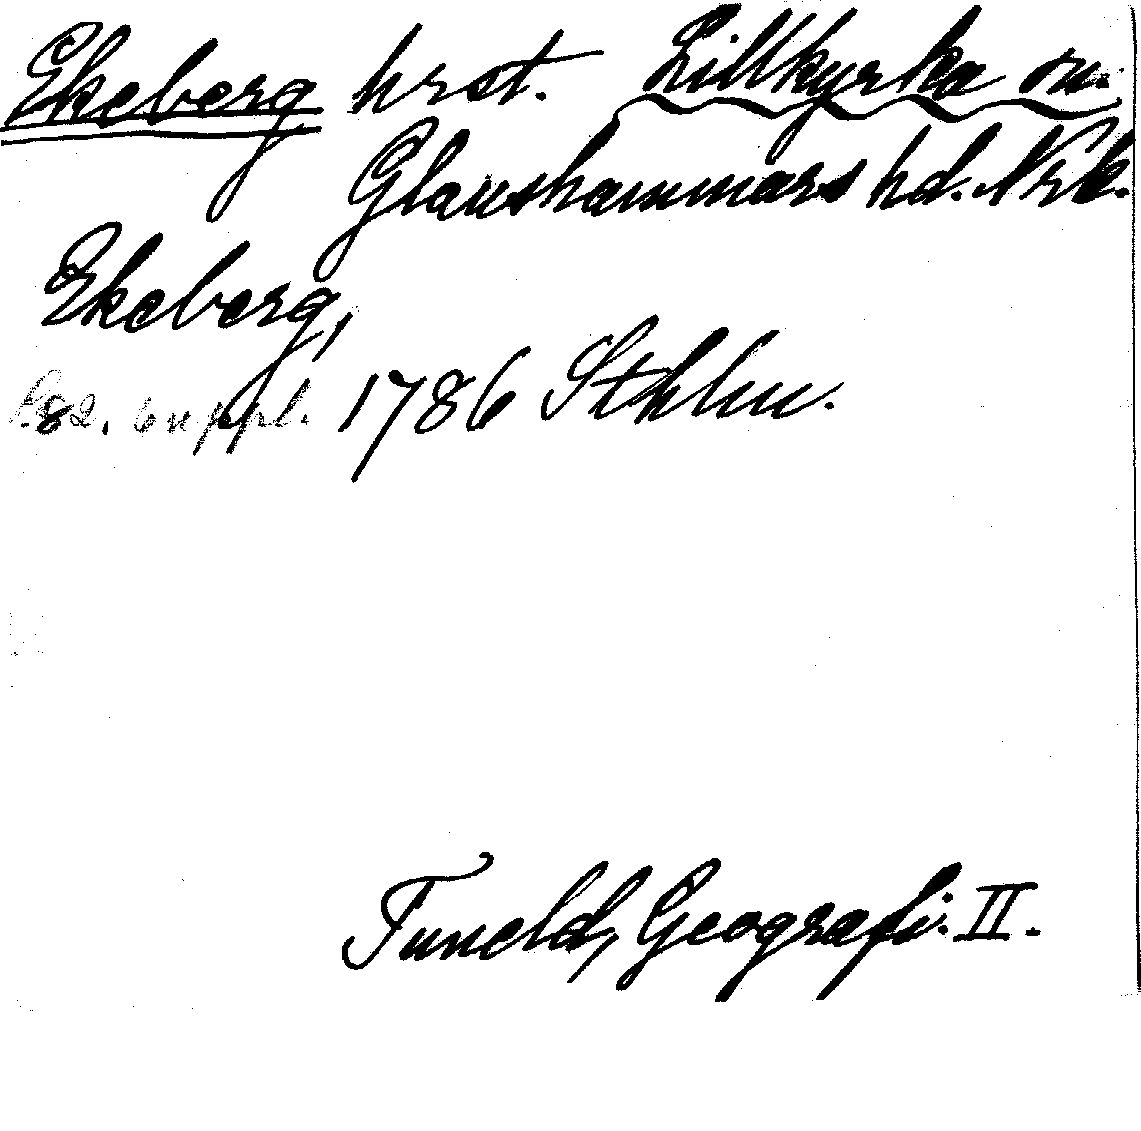 Ekeberg hrst. Lillkyrka sn.
Glanshammars hd. Nrk.
Ekeberg,
s. 82. suppl. 1786 Sthlm.
Tuneld, Geografi. II.